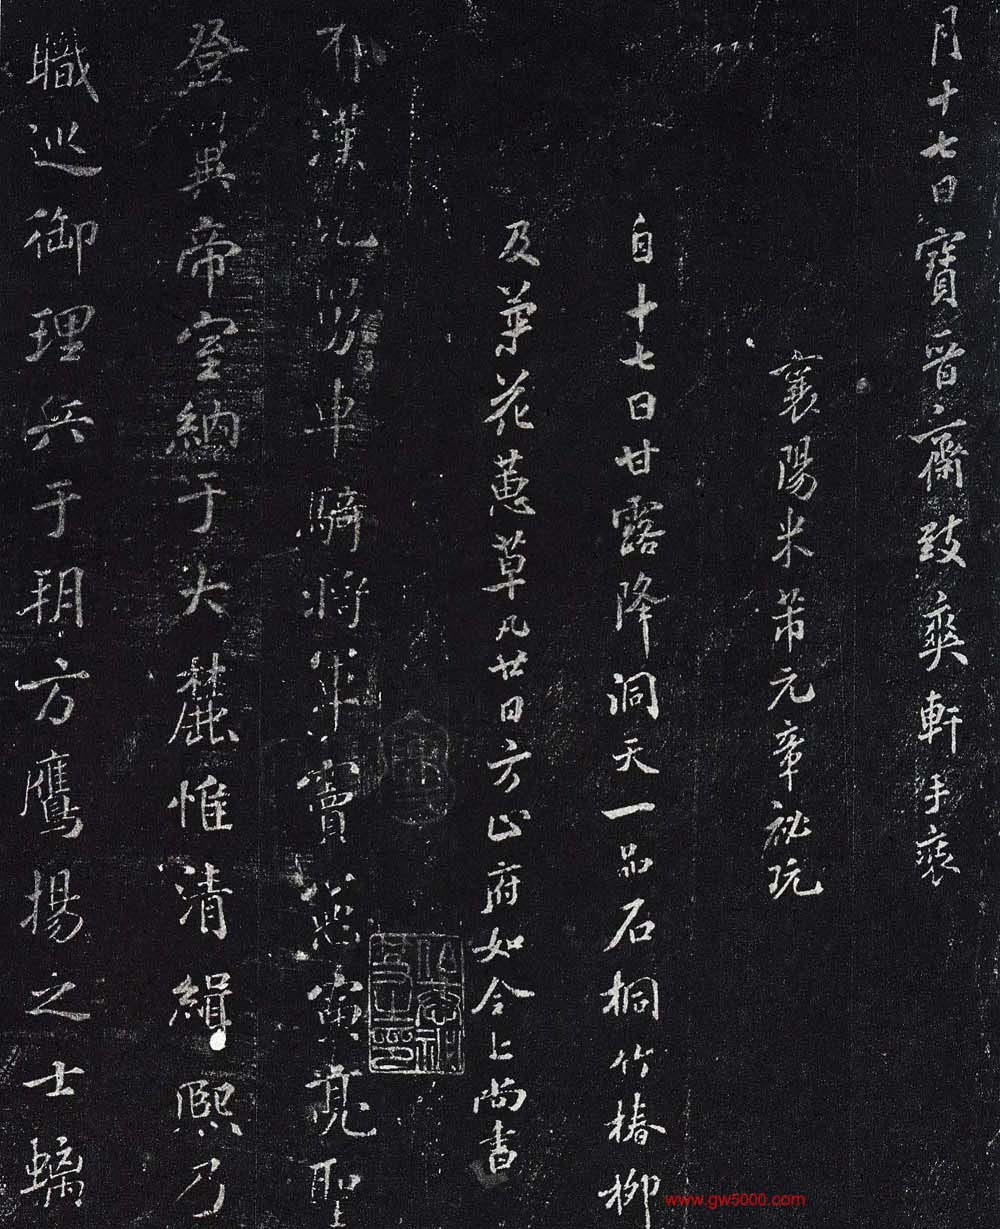 月十七日寶晉齋致爽軒手裝
襄陽米芾元章祕玩
自十七日甘露降洞天一品石桐竹椿柳
及蕉花蕙草凡廿日方止府如今上尚書
漢元 車騎將軍竇 寅亮聖
登異帝室納于大麓惟清緝熙乃
職巡御理兵于朔方鷹揚之士螭
www.gw5000.com